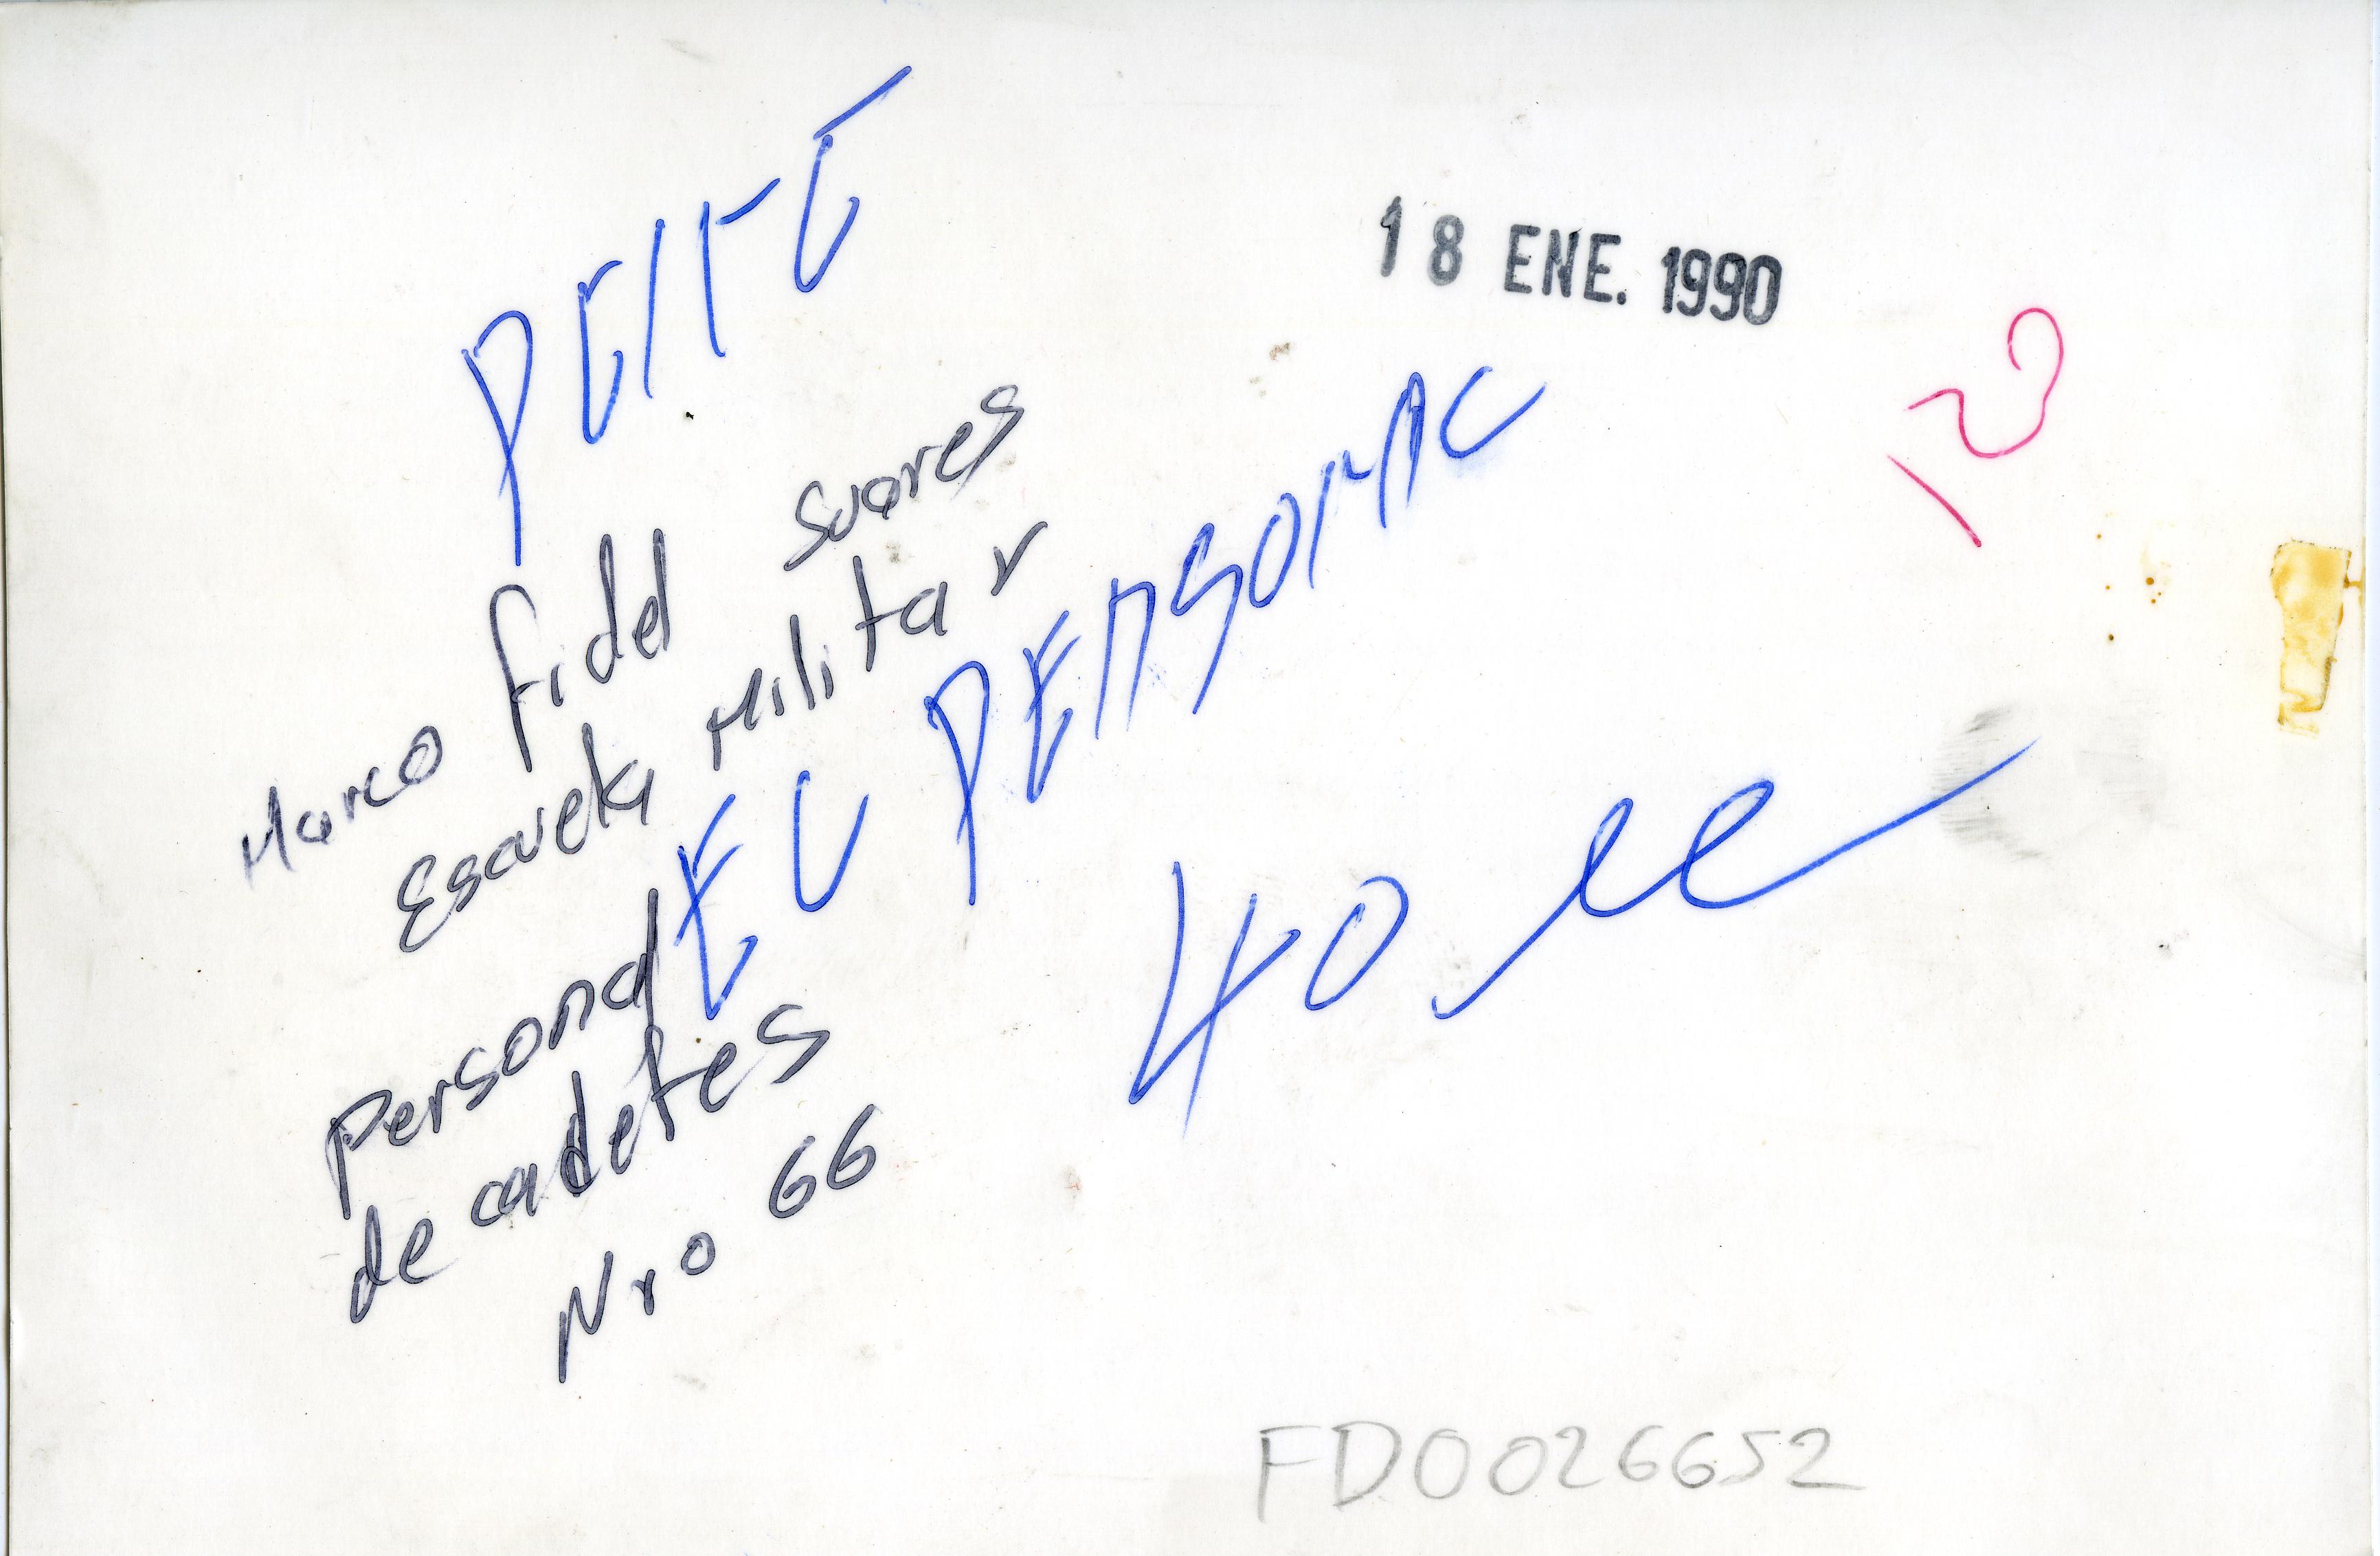 18 ENE. 1990
Marco fidel suares
Escuela Militar
personal
de cadetes
Nro 66
EL PERSONAL
40
FD0026652